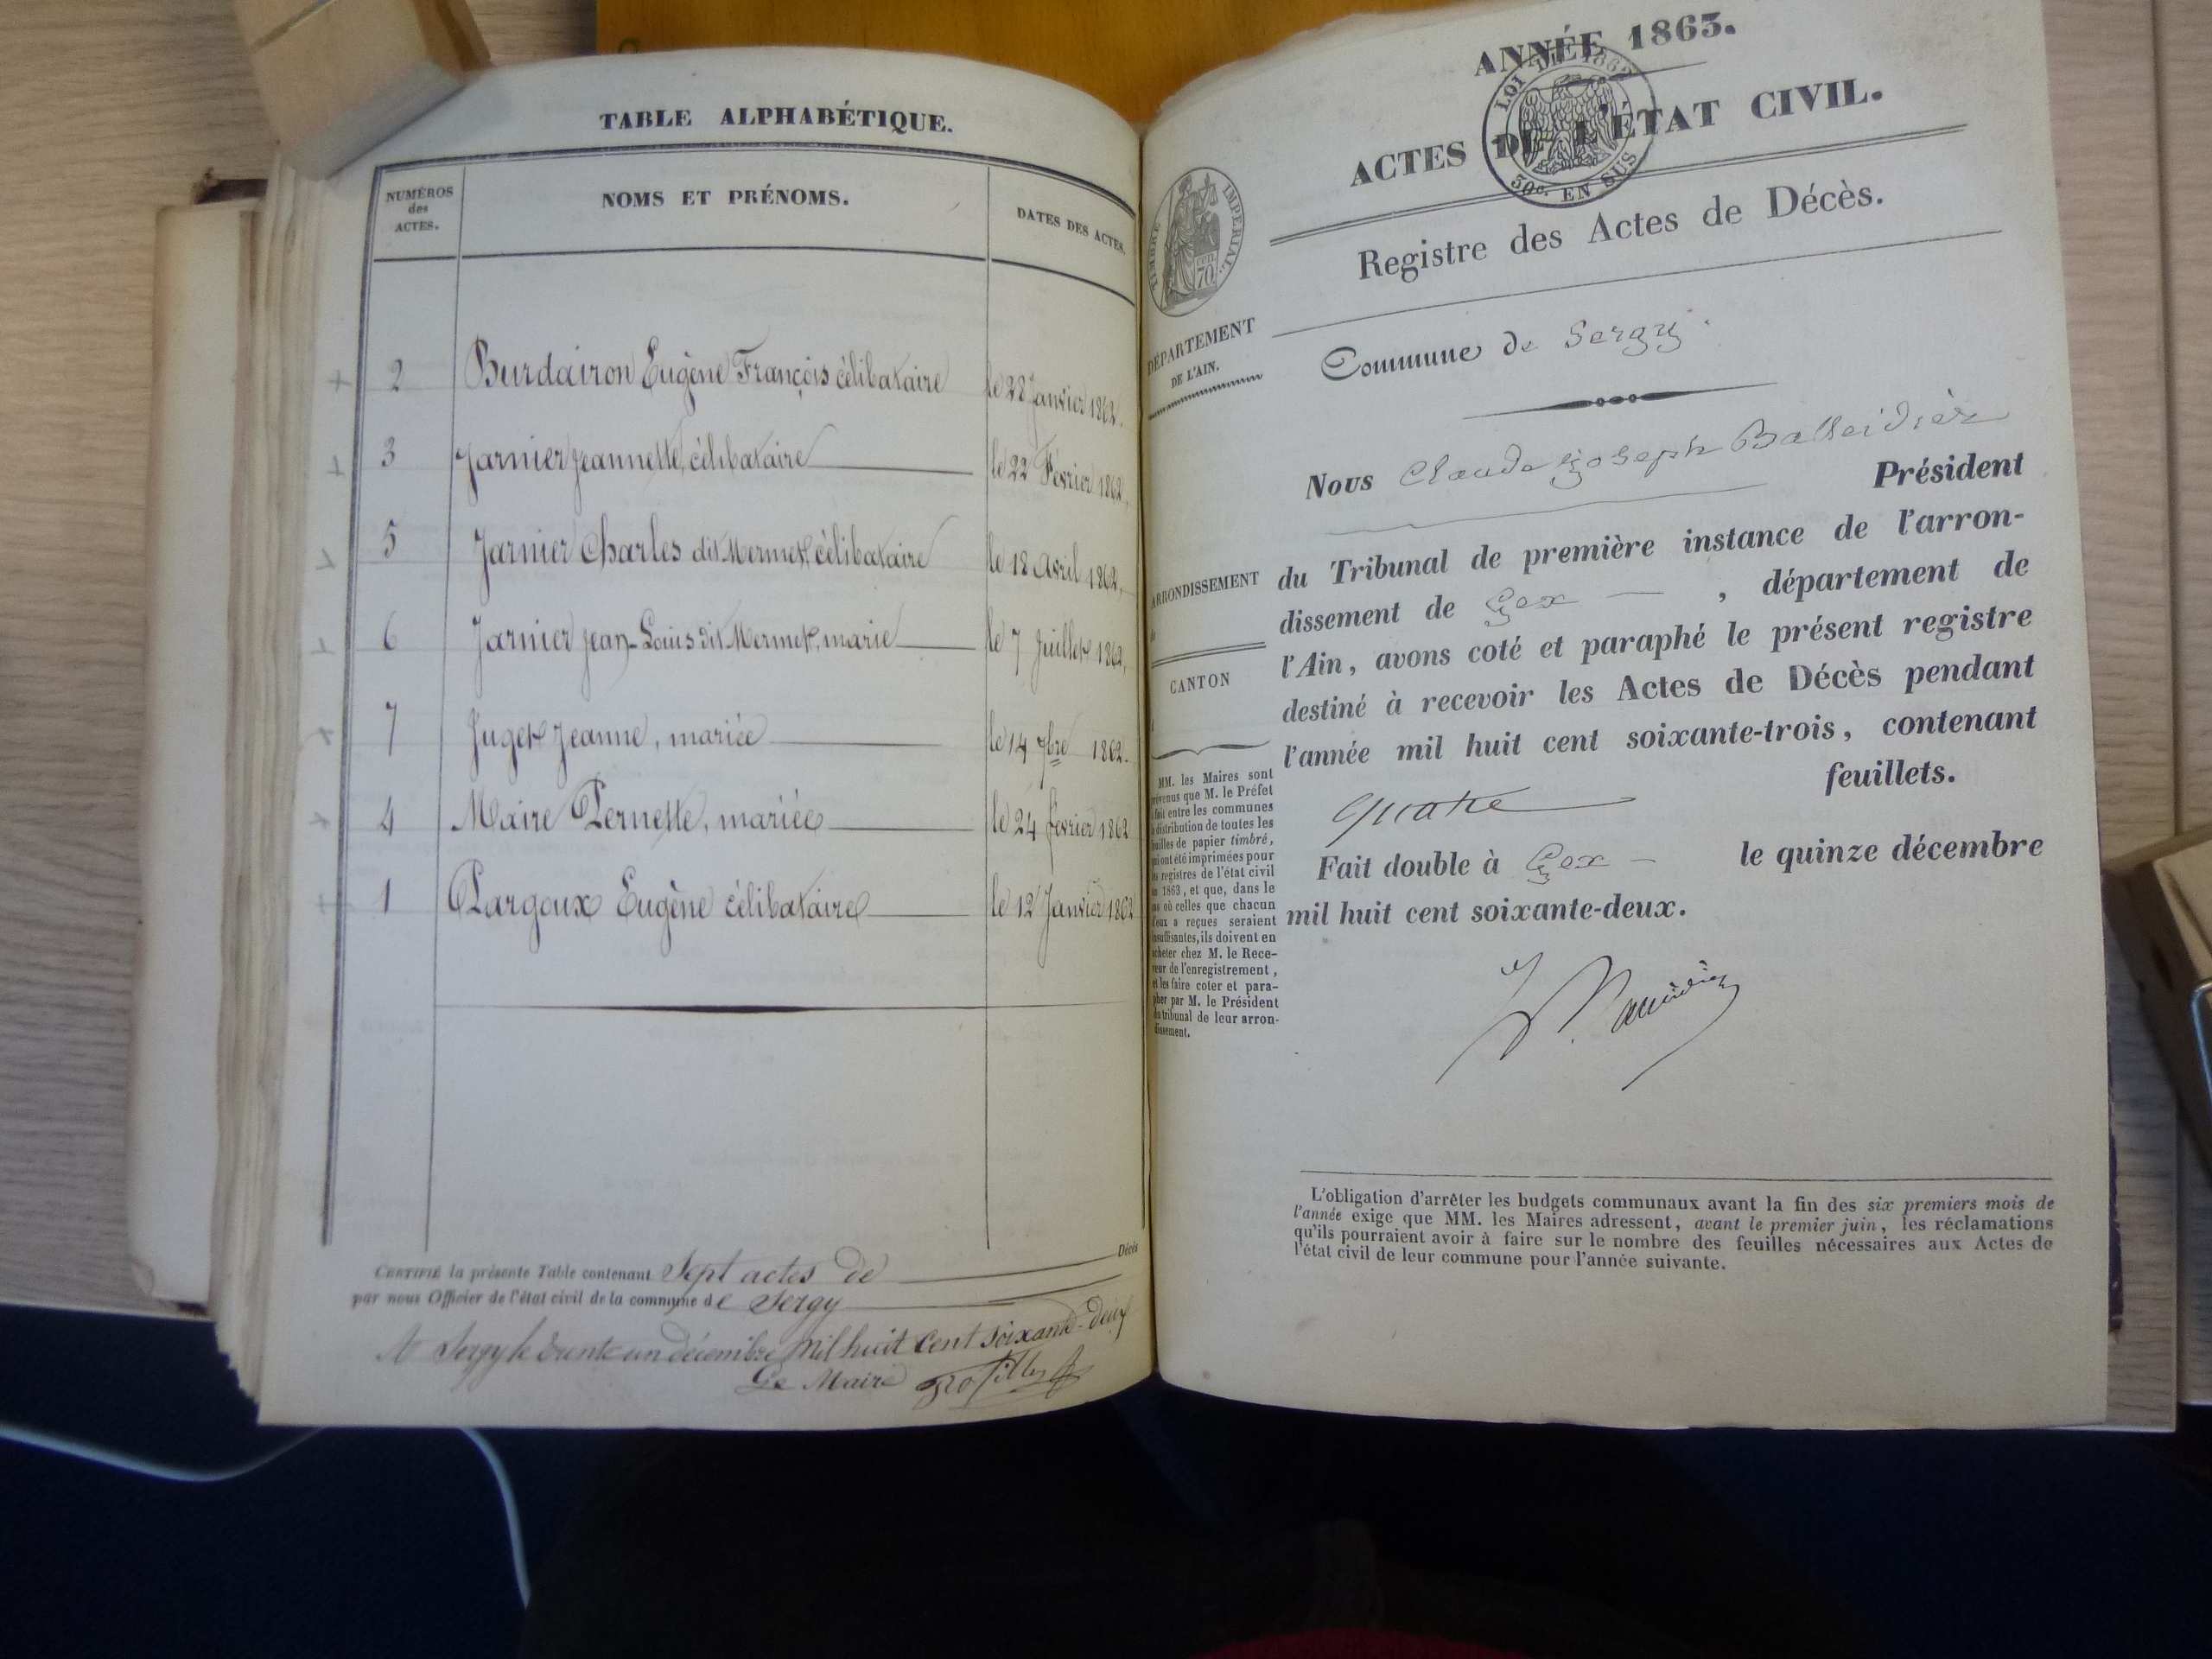 TABLE ALPHABÉTIQUE.
NUMÉROS
des
ACTES.
NOMS ET PRÉNOMS.
DATES DES ACTES.
2 Burdairon Eugène François célibataire le 28 Janvier 1862.
3 Jarnier Jeannette, célibataire le 22 Février 1862,
5 Jarnier Charles dit Mermet, célibataire le 18 Avril 1862,
6 Jarnier Jean-Louis dit Mermet, marie le 7 Juillet 1862,
7 Juget Jeanne, mariée le 14 7bre 1862.
4 Maire Pernette, mariée le 24 février 1862
1 Pargoux Eugène célibataire le 12 Janvier 1862
CERTIFIÉ la présente Table contenant Sept actes de Décès
par nous Officier de l'état civil de la commune de Sergy
A Sergy le trente un décembre mil huit cent soixante-deux
Le Maire
ANNÉE 1863.
LOI DE 1862
50c. EN SUS
ACTES DE L'ÉTAT CIVIL.
TIMBRE IMPÉRIAL.
70
Registre des Actes de Décès.
DÉPARTEMENT
DE L'AIN.
Commune de Sergy.
Nous Claude Joseph Balleidier
Président
du Tribunal de première instance de l'arron-
dissement de Gex, département de
l'Ain, avons coté et paraphé le présent registre
destiné à recevoir les Actes de Décès pendant
l'année mil huit cent soixante-trois, contenant
quatre feuillets.
Fait double à Gex le quinze décembre
mil huit cent soixante-deux.
ARRONDISSEMENT
CANTON
MM. les Maires sont
prévenus que M. le Préfet
a fait entre les communes
la distribution de toutes les
feuilles de papier timbré,
qui ont été imprimées pour
les registres de l'état civil
de 1863, et que, dans le
cas où celles que chacun
d'eux a reçues seraient
insuffisantes, ils doivent en
acheter chez M. le Rece-
veur de l'enregistrement,
et les faire coter et para-
pher par M. le Président
du tribunal de leur arron-
dissement.
L'obligation d'arrêter les budgets communaux avant la fin des six premiers mois de
l'année exige que MM. les Maires adressent, avant le premier juin, les réclamations
qu'ils pourraient avoir à faire sur le nombre des feuilles nécessaires aux Actes de
l'état civil de leur commune pour l'année suivante.